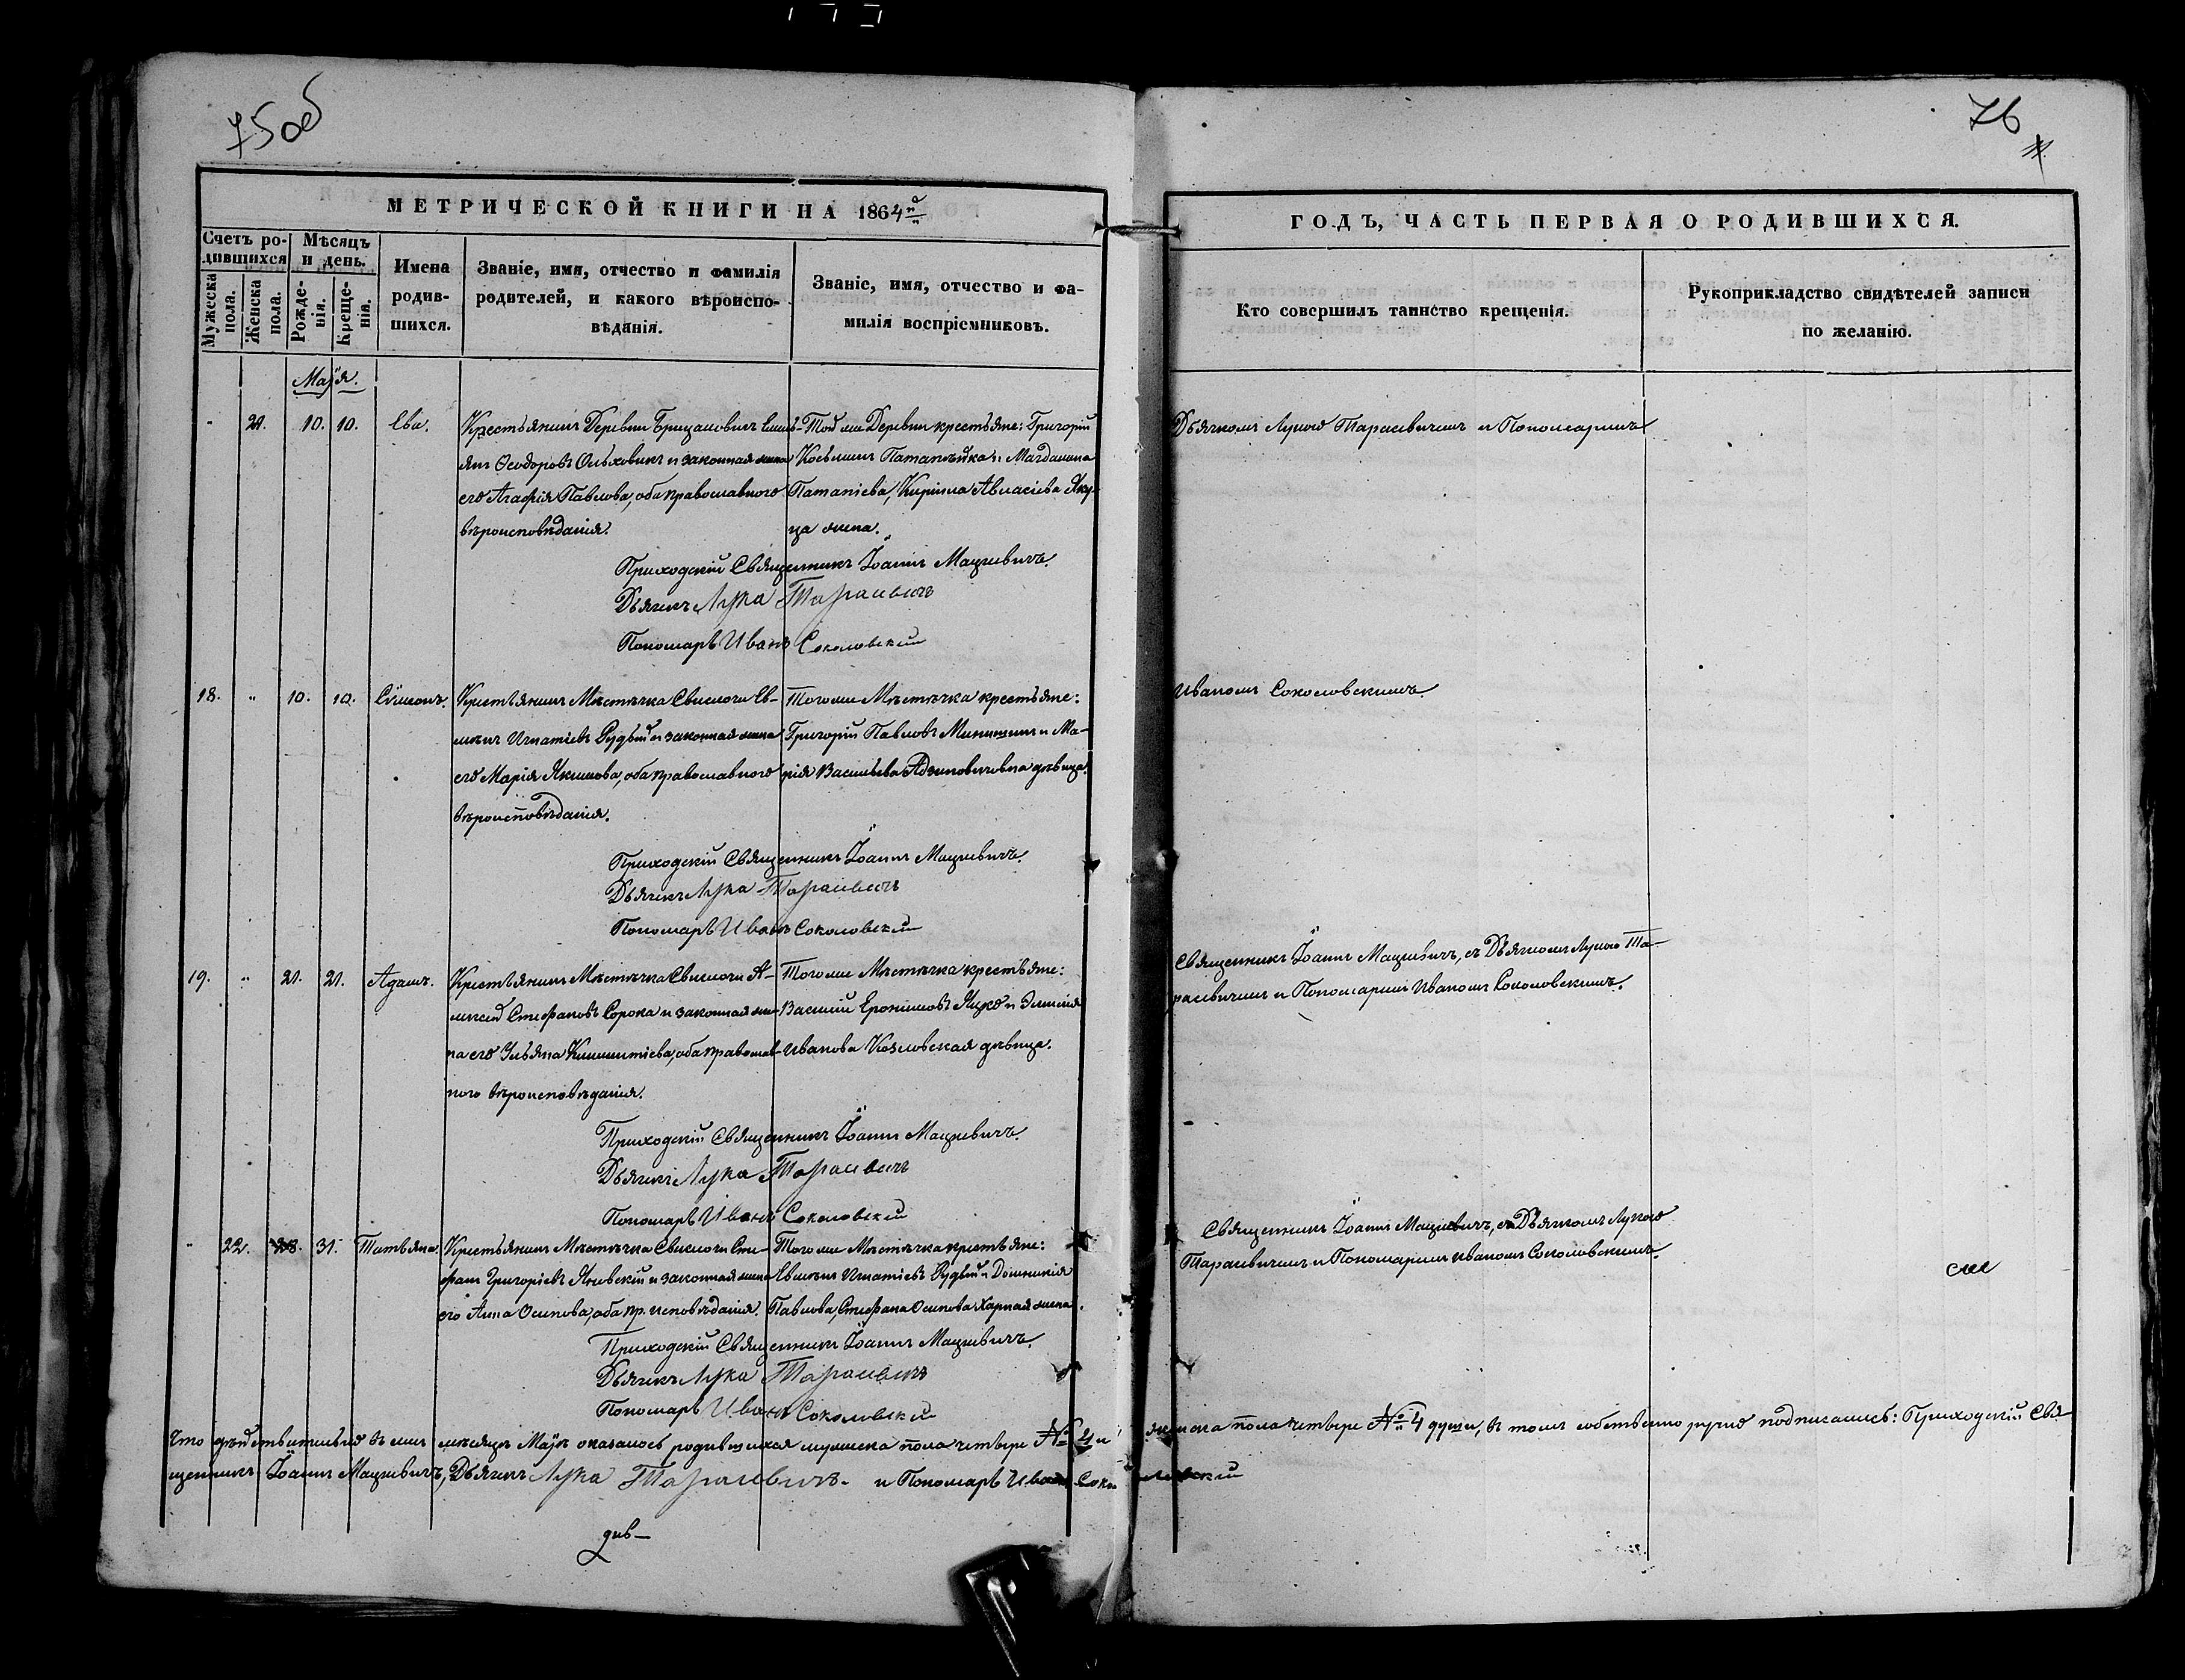 75об
МЕТРИЧЕСКОЙ КНИГИ НА 1864й
Счетъ родившихся
Мѣсяцъ и день.
Мужеска пола.
Женска пола.
Рожденія.
Крещенія.
Имена родившихся.
Званіе, имя, отчество и фамилія
родителей, и какого вѣроиспо-
вѣданія.
Званіе, имя, отчество и фа-
милія воспріемниковъ.
Маія.
" 21. 10. 10. Ева.
Крестьянинъ Деревни
янъ Ѳеодоровъ Ольховикъ и законная жена
его Агафія Павлова, оба православнаго
вѣроисповѣданія.
Той же Деревни крестьяне: Григорій
Косьминъ и Магдалина
Патапіева, Кирилла Авласіева Яку-
ца жена.
Приходскій Священникъ Іоаннъ Мацкевичъ.
Дьячекъ Лука Тарасевичъ
Пономарь Иванъ Соколовскій
18. " 10. 10. Сѵмеонъ.
Крестьянинъ Мѣстечка Свислочи Ев-
Игнатіевъ Рудый и законная жена
его Марія Якимова, оба православнаго
вѣроисповѣданія.
Тогоже Мѣстечка крестьяне:
Григорій Павловъ и Ма-
рія Васильева дѣвица.
Приходскій Священникъ Іоаннъ Мацкевичъ.
Дьячекъ Лука Тарасевичъ
Пономарь Иванъ Соколовскій
19. " 21. 21. Адамъ.
Крестьянинъ Мѣстечка Свислочи А-
лексѣй Стефановъ Сорока и законная же-
на его Ульяна Климентіева, оба православ-
наго вѣроисповѣданія.
Тогоже Мѣстечка крестьяне:
Василій Еронимовъ Яцко и Эмилія
Иванова Козловская дѣвица.
Приходскій Священникъ Іоаннъ Мацкевичъ.
Дьячекъ Лука Тарасевичъ
Пономарь Иванъ Соколовскій
" 22. 28. 31. Татьяна.
Крестьянинъ Мѣстечка Свислочи Сте-
фанъ Григоріевъ Яневскій и законная жена
его Анна Осипова, оба пр. исповѣданія.
Тогоже Мѣстечка крестьяне:
Игнатіевъ Рудый и Доминикія
Павлова, Стефана Осипова жена.
Приходскій Священникъ Іоаннъ Мацкевичъ.
Дьячекъ Лука Тарасевичъ
Пономарь Иванъ Соколовскій
Что дѣйствительно въ семъ мѣсяцѣ Маіѣ оказалось родившихся мужеска пола четыре № 4 и
щенникъ Іоаннъ Мацкевичъ, Дьячекъ Лука Тарасевичъ. и Пономарь Иванъ Соко
див-
76
ГОДЪ, ЧАСТЬ ПЕРВАЯ О РОДИВШИХСЯ.
Кто совершилъ таинство крещенія.
Рукоприкладство свидѣтелей записи
по желанію.
Дьячкомъ Лукою Тарасевичемъ и Пономаремъ
Иваномъ Соколовскимъ.
Священникъ Іоаннъ Мацкевичъ, съ Дьячкомъ Лукою Та-
расевичемъ и Пономаремъ Иваномъ Соколовскимъ.
Священникъ Іоаннъ Мацкевичъ, съ Дьячкомъ Лукою
Тарасевичемъ и Пономаремъ Иваномъ Соколовскимъ.
женска пола четыре № 4 души, въ томъ собственноручно подписались: Приходскій Свя-
ловскій